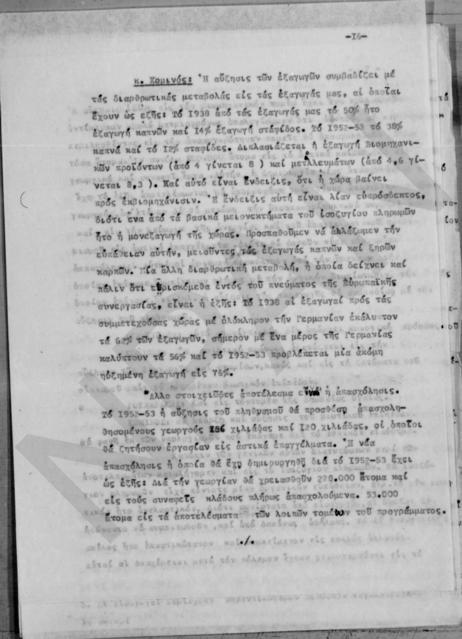 -16-
κ. Κομινός: Ἡ αὔξησις τῶν ἐξαγωγῶν συμβαδίζει μέ
τάς διαρθρωτικάς μεταβολάς εἰς τάς ἐξαγωγάς μας, αἱ ὁποῖαι
ἔχουν ὡς ἑξῆς: Τό 1938 ἀπό τάς ἐξαγωγάς μας τό 50% ἦτο
ἐξαγωγή καπνῶν καί 14% ἐξαγωγή σταφίδος. Τό 1952-53 τό 38%
καπνά καί τό 12% σταφίδες. Διπλασιάζεται ἡ ἐξαγωγή βιομηχανι-
κῶν προϊόντων (ἀπό 4 γίνεται 8 ) καί μετλλευμάτων (ἀπό 4,6 γί-
νεται 8,3 ). Καί αὐτό εἶναι ἔνδειξις, ὅτι ἡ χώρα βαίνει
πρός ἐκβιομηχάνισιν. Ἡ ἔνδειξις αὐτή εἶναι λίαν εὐπρόσδεκτος,
διότι ἕνα ἀπό τά βασικά μειονεκτήματα τοῦ ἰσοζυγίου πληρωμῶν
ἦτο ἡ μονεξαγωγή τῆς χώρας. Προσπαθοῦμεν νά ἀλλάξωμεν τήν
αὐτήν, μειοῦντες τάς ἐξαγωγάς καπνῶν καί ξηρῶν
καρπῶν. Μία ἄλλη διαρθρωτική μεταβολή, ἡ ὁποία δείχνει καί
πάλιν ὅτι εὑρισκόμεθα ἐντός τοῦ πνεύματος τῆς εὐρωπαϊκῆς
συνεργασίας, εἶναι ἡ ἑξῆς: Τό 1938 αἱ ἐξαγωγαί πρός τάς
συμμετεχούσας χώρας μέ ὁλόκληρον τήν Γερμανίαν ἐκάλυπτον
τό 62% τῶν ἐξαγωγῶν, σήμερον μέ ἕνα μέρος τῆς Γερμανίας
καλύπτουν τό 56% καί τό 1952-53 προβλέπεται μία ἀκόμη
ηὐξημένη ἐξαγωγή εἰς 76%.
Ἄλλο στοιχειῶδες ἀποτέλεσμα εἶναι ἡ ἀπασχόλησις.
Τό 1952-53 ἡ αὔξησις τοῦ πληθυσμοῦ θά προσθέση ἀπασχολη-
θησομένους γεωργούς χιλιάδας καί 120 χιλιάδας, οἱ ὁποῖοι
θά ζητήσουν ἐργασίαν εἰς ἀστικά ἐπαγγέλματα. Ἡ νέα
ἀπασχόλησις ἡ ὁποία θά ἔχη δημιουργηθῆ διά τό 1952-53 ἔχει
ὡς ἑξῆς: Διά τήν γεωργίαν θά χρειασθοῦν 220.000 ἄτομα καί
εἰς τούς συναφεῖς κλάδους πλήρως ἀπασχολούμενα. 53.000
ἄτομα εἰς τά ἀποτελέσματα τῶν λοιπῶν τομέων τοῦ προγράμματος.
./.